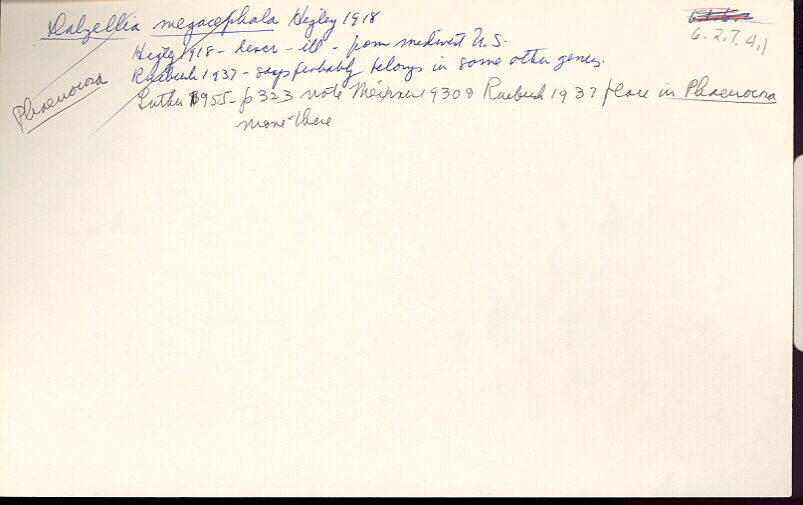 Dalzellia megacephala Higley 1918
6.2.7.4.1
Higley 1918 - descr - ill - from midwest U.S.
Ruebush 1937 - says probably belongs in some other genus.
Phaenocora
Luther 1955 - p 323 note Meixner 1930 & Ruebush 1937 place in Phaenocora
move there